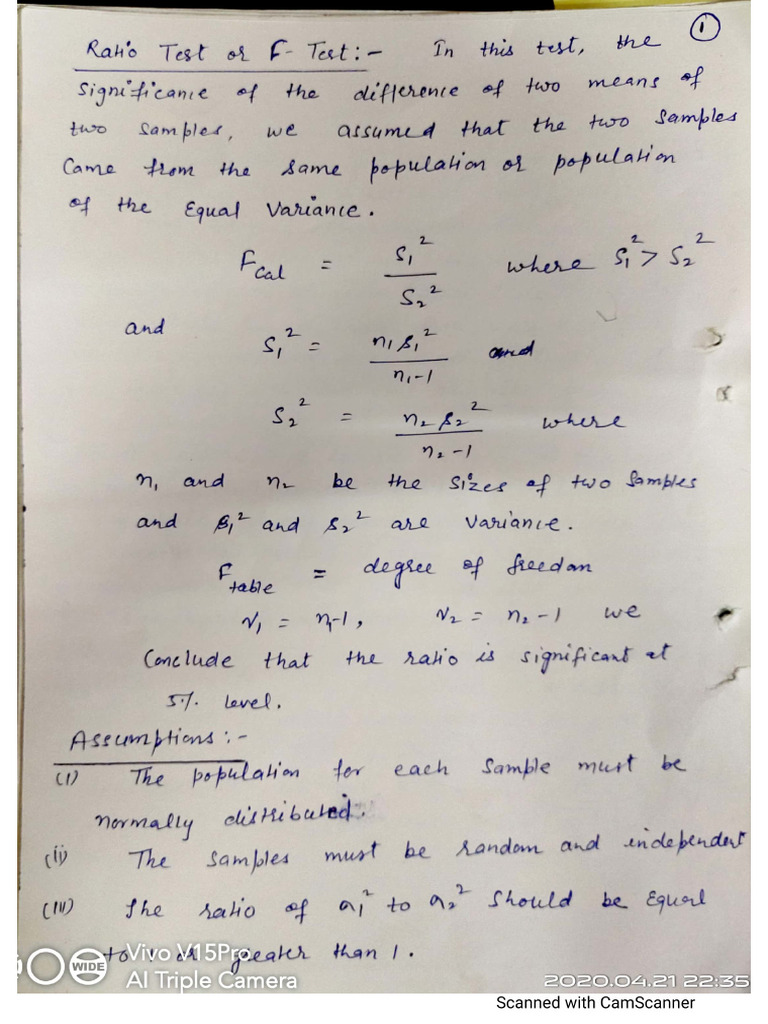 ①
Ratio Test or F-Test:- In this test, the
significance of the difference of two means of
two samples, we assumed that the two samples
came from the same population or population
of the Equal Variance.
F_cal = S₁²/S₂² where S₁² > S₂²
and S₁² = n₁s₁²/(n₁-1) and
S₂² = n₂s₂²/(n₂-1) where
n₁ and n₂ be the sizes of two samples
and s₁² and s₂² are variance.
F_table = degree of freedom
ν₁ = n₁-1, ν₂ = n₂-1 we
Conclude that the ratio is significant at
5% level.
Assumptions:-
(i) The population for each sample must be
normally distributed.
(ii) The samples must be random and independent
(iii) The ratio of σ₁² to σ₂² should be equal
to 1 or greater than 1.
Vivo V15Pro
WIDE
AI Triple Camera
2020.04.21 22:35
Scanned with CamScanner